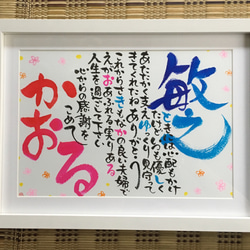 敏之
ときには心配もかけ
たけどいつも優しく
あたたかく支え ゆっくり見守って
きてくれたね ありがとう
これからさきもなかの良い夫婦で
えがおあふれる実りある
人生を過ごして下さい
心からの感謝を
こめて
かおる